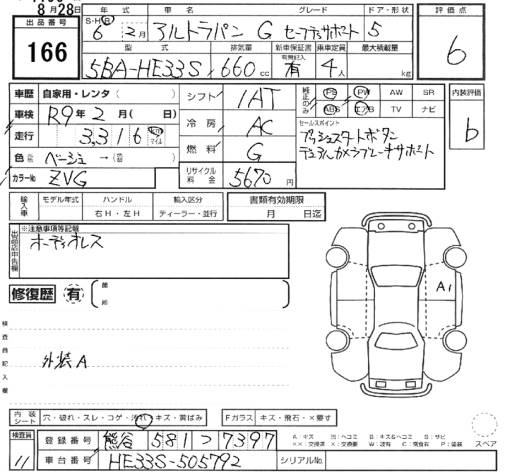 8月28日
出品番号
166
年式 車名 グレード ドア・形状
S・H・R 6年2月 アルトラパン G セーフティサポート 5
型式 排気量 新車保証書 乗車定員 最大積載量
5BA-HE33S 660cc 有 4人 kg
評価点
6
車歴 自家用・レンタ ( )
車検 R9年2月( 日)
走行 3,316 km マイル
色 ベージュ →
カラーNo ZVG
シフト IAT
冷房 AC
燃料 G
リサイクル料金 5670円
純正のみ PS PW AW SR
ABS エアB TV ナビ
セールスポイント
プッシュスタートボタン
デュアルカメラブレーキサポート
内装評価
b
輸入車 モデル年式 ハンドル 輸入区分
右H・左H ディーラー・並行
書類有効期限
月 日迄
出品店申告欄
※注意事項等記載
オーディオレス
修復歴 有
検査員記入欄
外装A
A1
内装シート 穴・破れ・スレ・コゲ・汚れ・キズ・黄ばみ
Fガラス キズ・飛石・×要す
検査員 11
登録番号 熊谷 581 つ 7397
車台番号 HE33S-505792
シリアルNo.
A:キズ U:ヘコミ B:キズ&ヘコミ S:サビ
XX:交換済 X:要交換 W:波有 C:腐食有 P:塗装
スペア